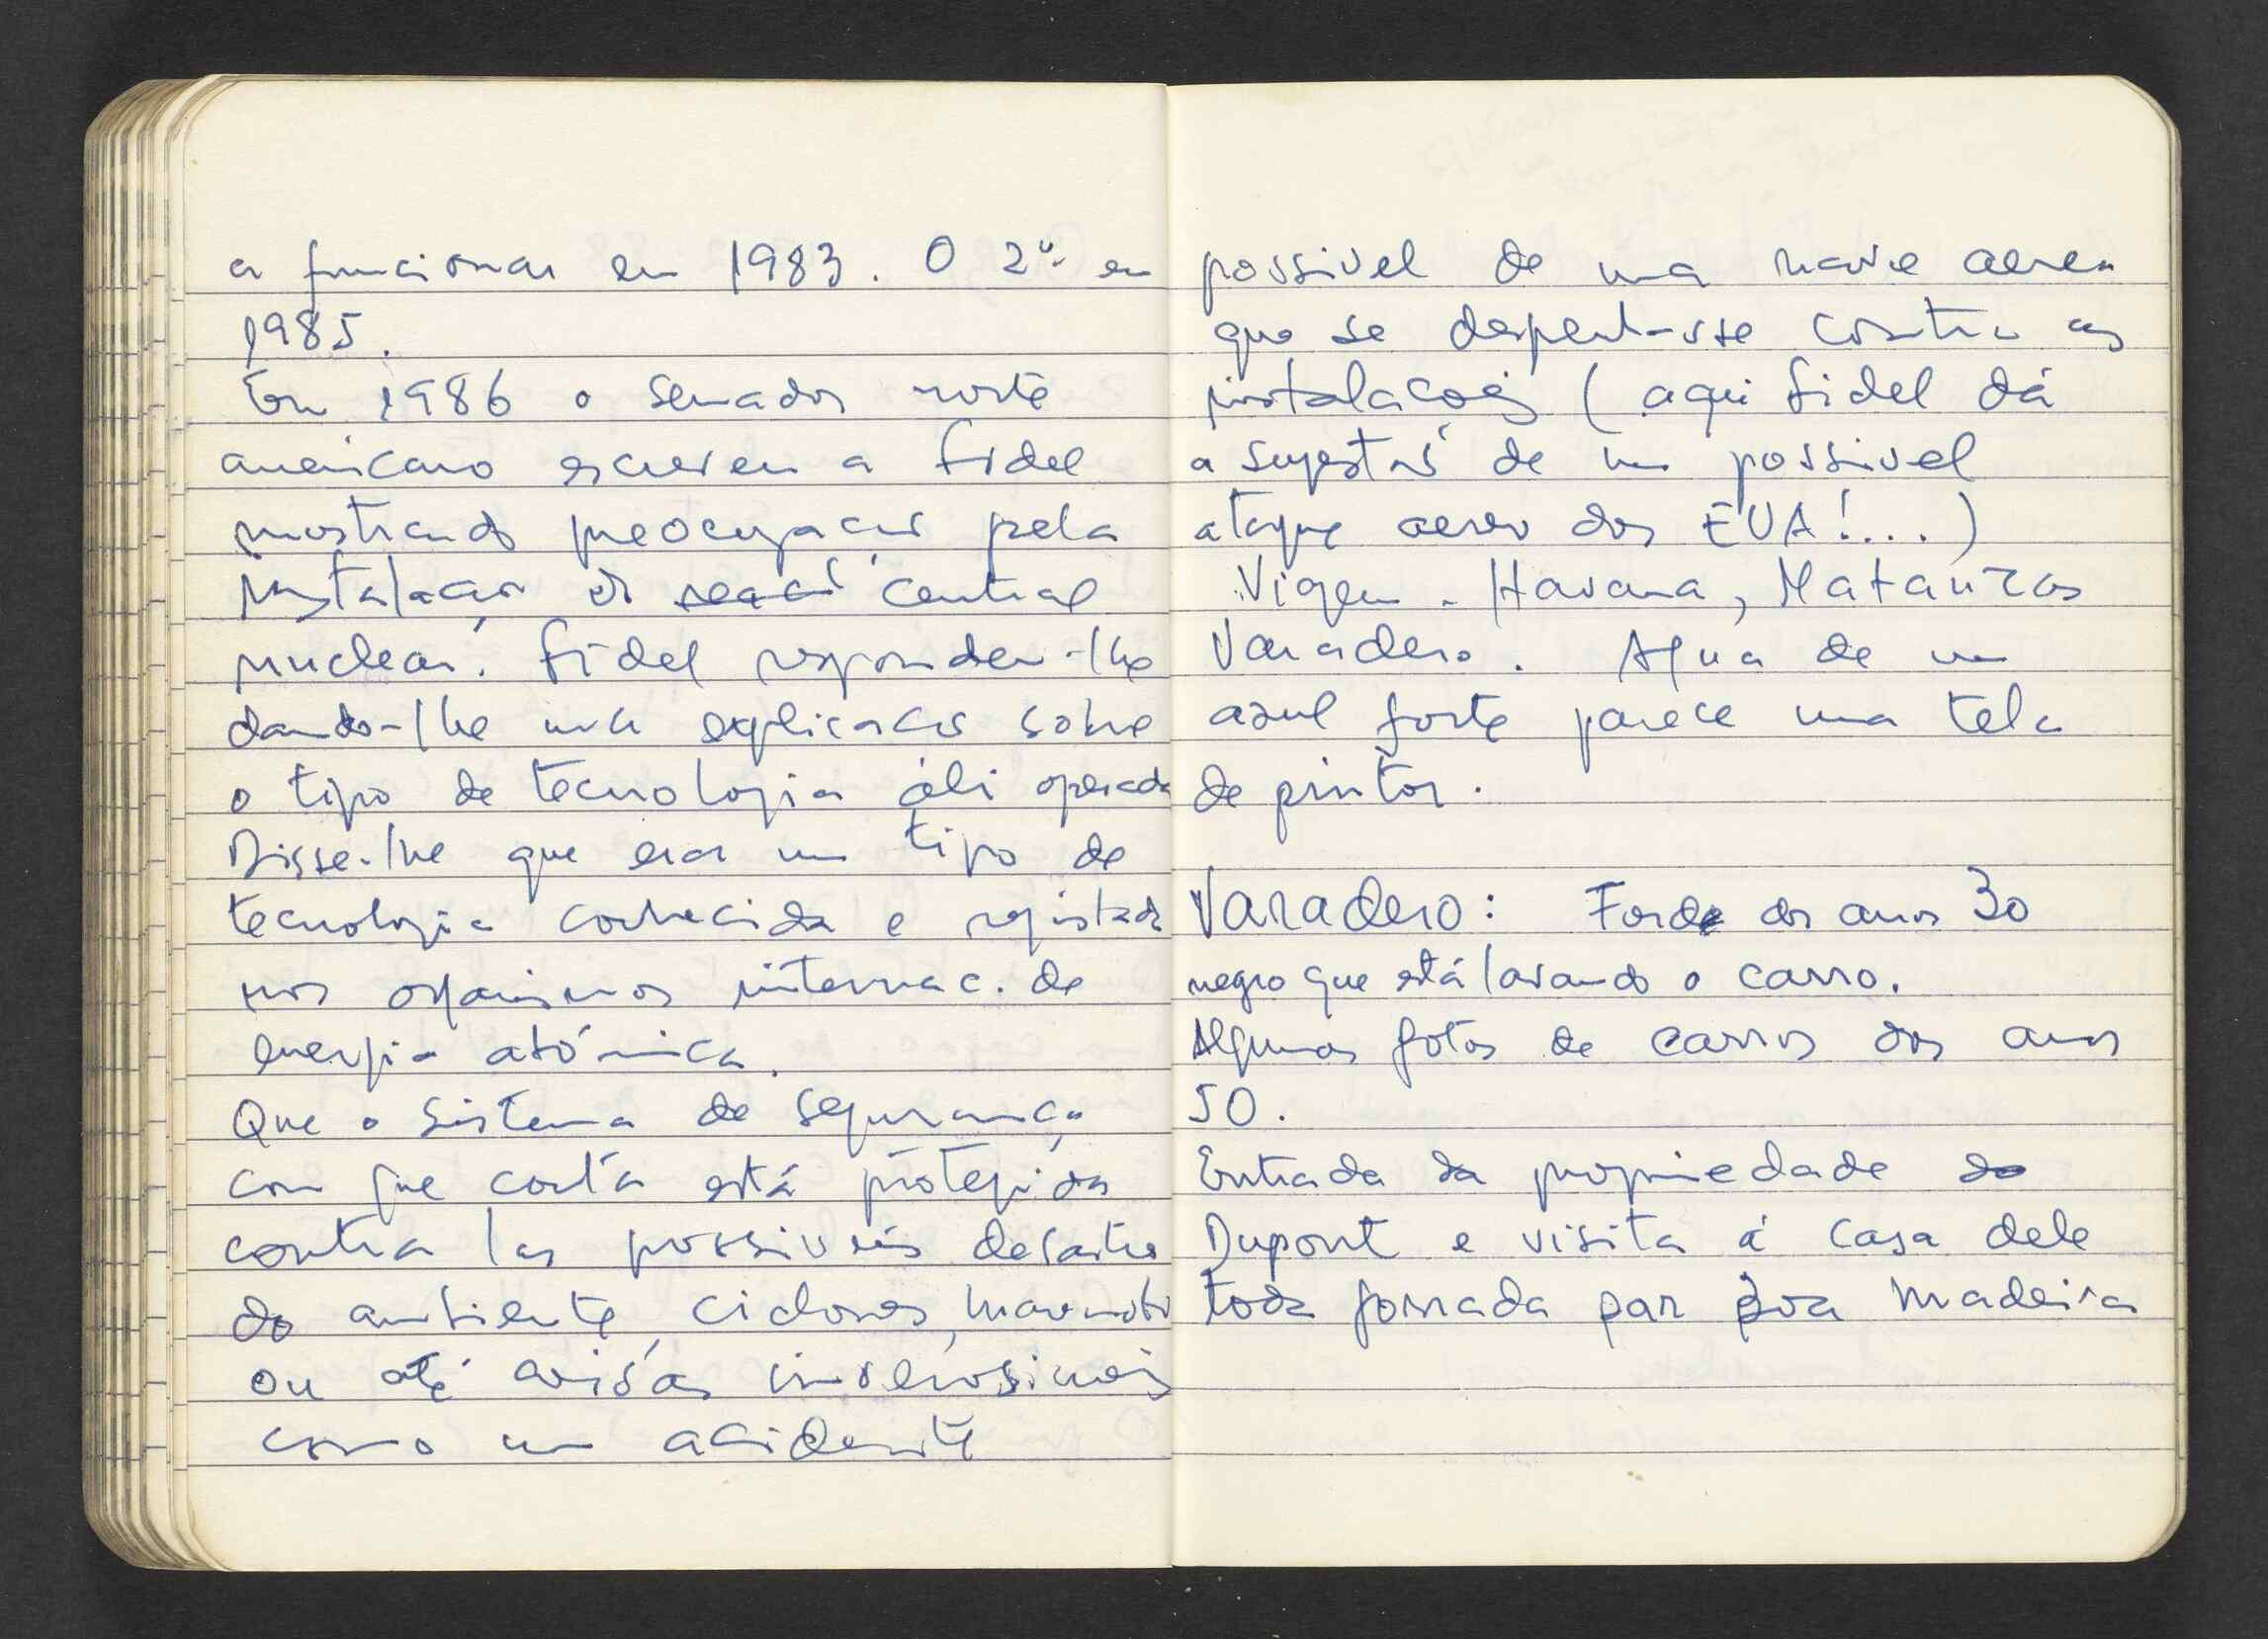 a funcionar em 1983. O 2º em
1985.
Em 1986 o senador norte
americano escreveu a Fidel
mostrando preocupação pela
instalação da central
nuclear. Fidel respondeu-lhe
dando-lhe uma explicação sobre
o tipo de tecnologia ali operada
Disse-lhe que era um tipo de
tecnologia conhecida e registada
nos organismos internac. de
energia atómica.
Que o sistema de segurança
com que conta está protegida
contra las possiveis desastre
do ambiente, ciclones, maremoto
ou até coisas inverosimeis
como um acidente
possivel de uma nave aerea
que se despenhasse contra as
instalações (aqui Fidel dá
a sugestão de um possivel
ataque aereo dos EUA!....)
Viagem - Havana, Matanzas
Varadero. Agua de um
azul forte parece uma tela
de pintor.
Varadero: Ford dos anos 30
negro que está lavando o carro.
Algumas fotos de carros dos anos
50.
Entrada da propriedade do
Dupont e visita á casa dele
toda forrada por boa madeira